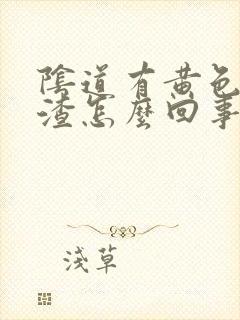 陰道有黃色
渣怎麼回事
淺草